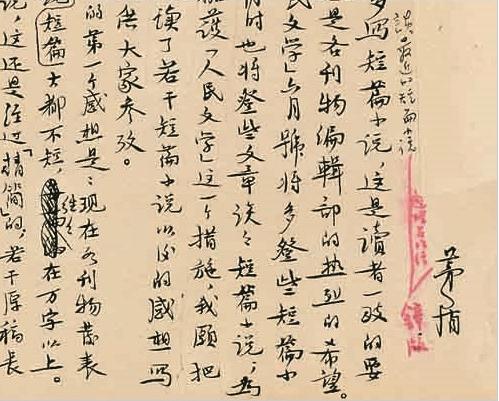 茅盾
談最近的短篇小说
多写短篇小说，这是讀者一致的要
是各刊物編輯部的热烈的希望。
民文学」六月號将多登些短篇小
时也将登些文章谈谈短篇小说，为
护「人民文学」这一个措施，我願把
读了若干短篇小说以后的感想写
供大家参攷。
的第一个感想是：现在各刊物發表
短篇大都不短，往往在万字以上。
说，这还是经过「精简」的，若干原稿長